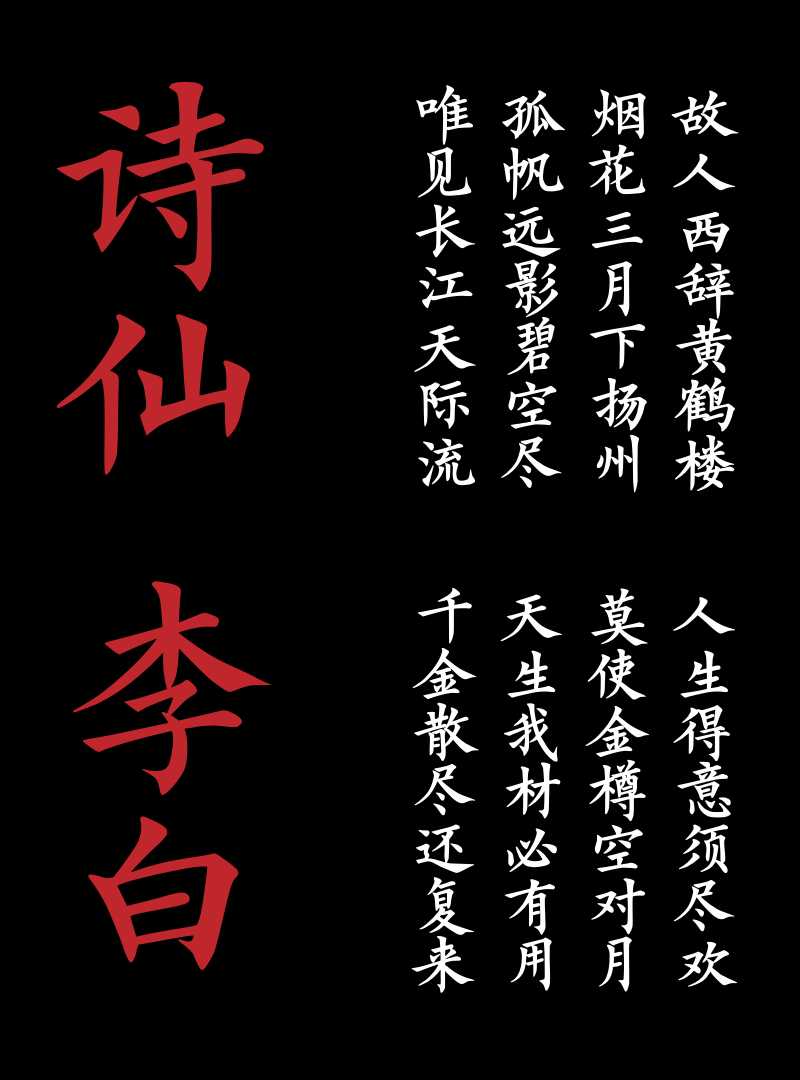 故人西辞黄鹤楼
烟花三月下扬州
孤帆远影碧空尽
唯见长江天际流
人生得意须尽欢
莫使金樽空对月
天生我材必有用
千金散尽还复来
诗仙
李白